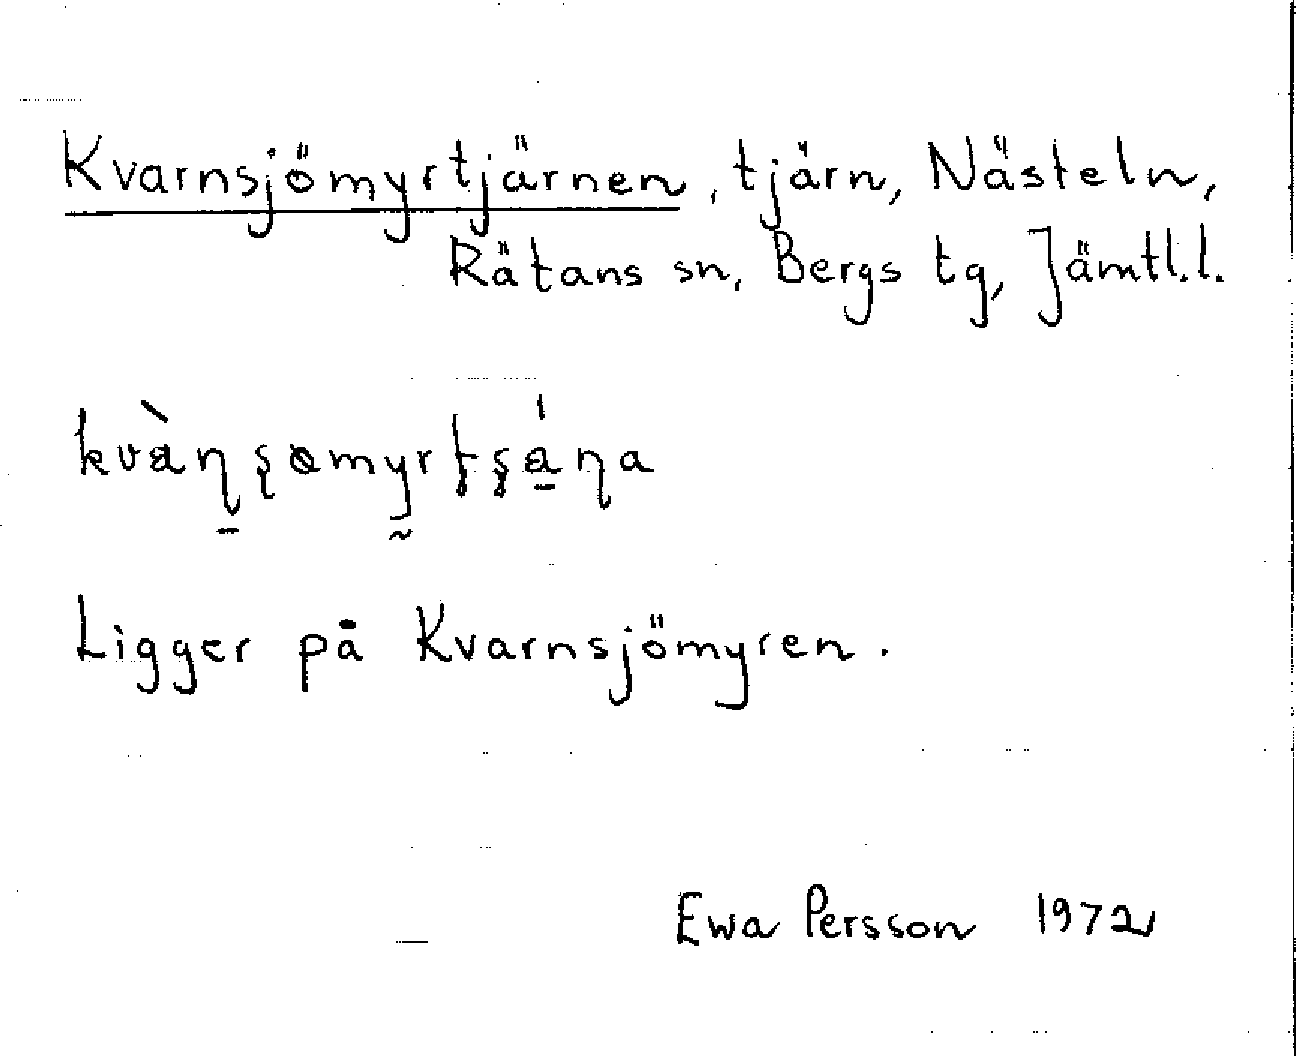 Kvarnsjömyrtjärnen, tjärn, Nästeln,
Rätans sn, Bergs tg, Jämtl.l.
Ligger på Kvarnsjömyren.
Ewa Persson 1972